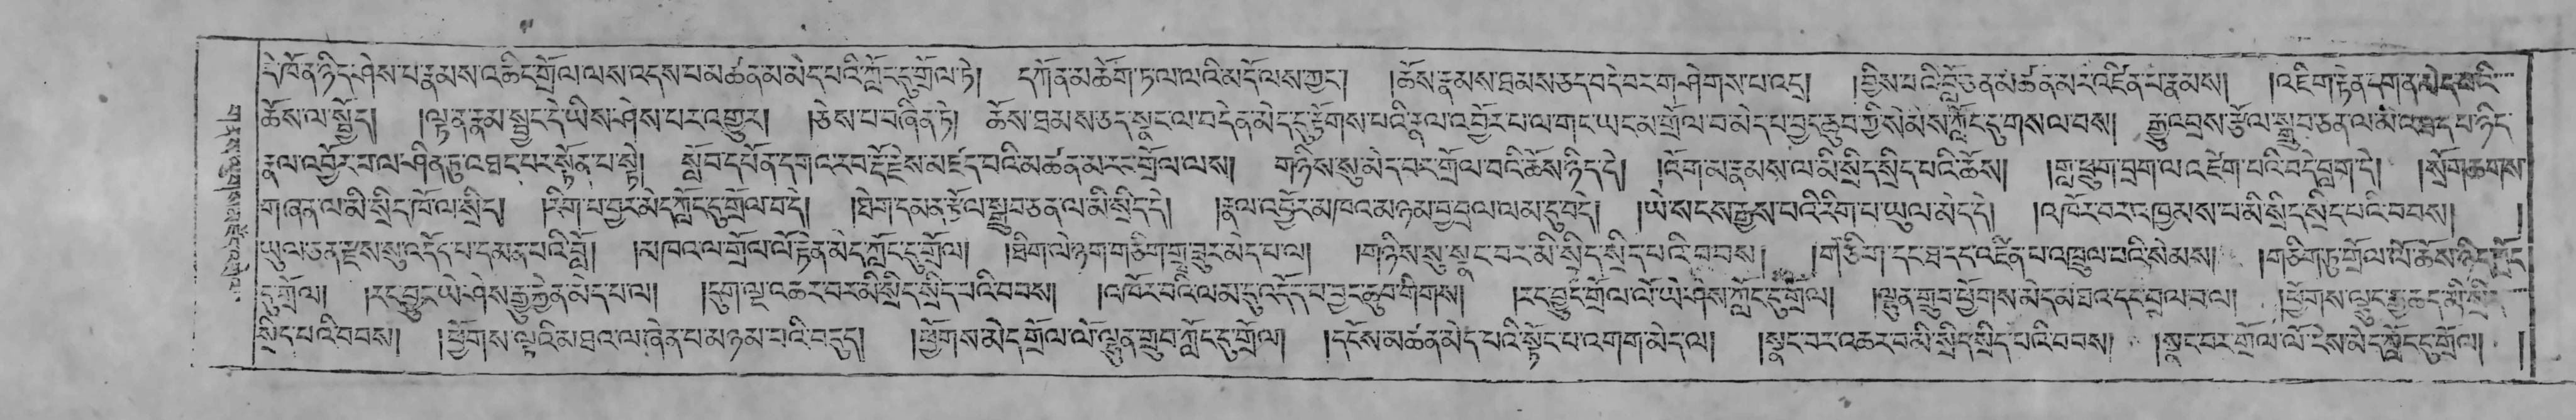 དེ་ཁོན་ཉིད་ཤེས་པ་རྣམས་འཆིང་གྲོལ་ལས་འདས་པ་མཚན་མ་མེད་པའི་ཀློང་དུ་གྲོལ་ཏེ། དཀོན་མཆོག་ཏལ་ལའི་མདོ་ལས་ཀྱང་། །ཆོས་རྣམས་ཐམས་ཅད་བདེ་བར་གཤེགས་པ་འདྲ། །བྱིས་པའི་བློ་ཅན་མཚན་མར་འཛིན་པ་རྣམས། །འཇིག་རྟེན་དག་ན་མེད་པའི་
ཆོས་ལ་སྤྱོད། །ལྟན་རྣམ་སྦྱང་དེ་ཡིས་ཤེས་པར་འགྱུར། །ཅེས་པ་བཞིན་ཏེ། ཆོས་ཐམས་ཅད་སྣང་ལ་བདེན་མེད་དུ་རྟོགས་པའི་རྣལ་འབྱོར་པ་ལ་གང་ཡང་མ་གྲོལ་བ་མེད་པ་བྱང་ཆུབ་ཀྱི་སེམས་ཀློང་དུ་གསལ་བས། རྒྱུ་འབྲས་རྩོལ་སྒྲུབ་ཅན་ལ་མི་འཐད་པ་ཉིད་
རྣལ་འབྱོར་བ་ལ་ཤིན་ཏུ་འཐད་པར་སྟོན་པ་སྟེ། སློབ་དཔོན་དགའ་རབ་རྡོ་རྗེས་མཛད་པའི་མཚན་མ་རང་གྲོལ་ལས། གཉིས་སུ་མེད་བར་གྲོལ་བའི་ཆོས་ཉིད་དེ། །འོག་མ་རྣམས་ལ་མི་སྲིད་སྲིད་པའི་ཆོས། །གླ་ཕྲུག་བྲག་ལ་འཛེག་པའི་བདེ་བླག་དེ། །སྲོག་ཆགས་
གཞན་ལ་མི་སྲིད་ཁོ་ལ་སྲིད། །རིག་པ་བྱར་མེད་ཀློང་དུ་གྲོལ་བ་དེ། །ཐེག་དམན་རྩོལ་སྒྲུབ་ཅན་ལ་མི་སྲིད་དེ། །རྣལ་འབྱོར་མཁའ་མཉམ་བྱ་བྲལ་ལམ་དུ་བདེ། །ཡེ་སངས་རྒྱས་པའི་རིག་པ་ཡུལ་མེད་དེ། །འཁོར་བར་འཁྱམས་པ་མི་སྲིད་སྲིད་པའི་བབས། །
ཡུལ་ཅན་རྫས་སུ་འདོད་པ་དམན་པའི་བློ། །མཁའ་ལ་གྲོལ་ལོ་རྟེན་མེད་ཀློང་དུ་གྲོལ། །ཐིག་ལེ་ཉག་གཅིག་གྲྭ་ཟུར་མེད་པ་ལ། །གཉིས་སུ་སྣང་བར་མི་སྲིད་སྲིད་པའི་བབས། །གཅིག་དང་ཐ་དད་འཛིན་པ་འཁྲུལ་པའི་སེམས། །གཅིག་ཏུ་གྲོལ་ལོ་ཆོས་ཉིད་ཀློང་
དུ་གྲོལ། །རང་བྱུང་ཡེ་ཤེས་རྒྱུ་རྐྱེན་མེད་པ་ལ། །དུག་ལྔ་འཆར་བར་མི་སྲིད་སྲིད་པའི་བབས། །འཁོར་བའི་ལམ་དུ་འདོད་པ་བྱང་ཆུབ་གེགས། །རང་བྱུང་གྲོལ་ལོ་ཡེ་ཤེས་ཀློང་དུ་གྲོལ། །ལྷུན་གྲུབ་ཕྱོགས་མེད་མཐའ་དང་བྲལ་བ་ལ། །ཕྱོགས་ལྷུང་རྒྱ་ཆད་མི་སྲི
སྲིད་པའི་བབས། །ཕྱོགས་ལྟའི་མཐའ་ལ་ཞེན་པ་མཉམ་པའི་བདུད། །ཕྱོགས་མེད་གྲོལ་ལོ་ལྷུན་གྲུབ་ཀློང་དུ་གྲོལ། །དངོས་མཚན་མེད་པའི་སྟོང་པ་འགག་མེད་ལ། །སྣང་བར་འཆར་བ་མི་སྲིད་སྲིད་པའི་བབས། །སྣང་བར་གྲོལ་ལོ་ངེས་མེད་ཀློང་དུ་གྲོལ། །